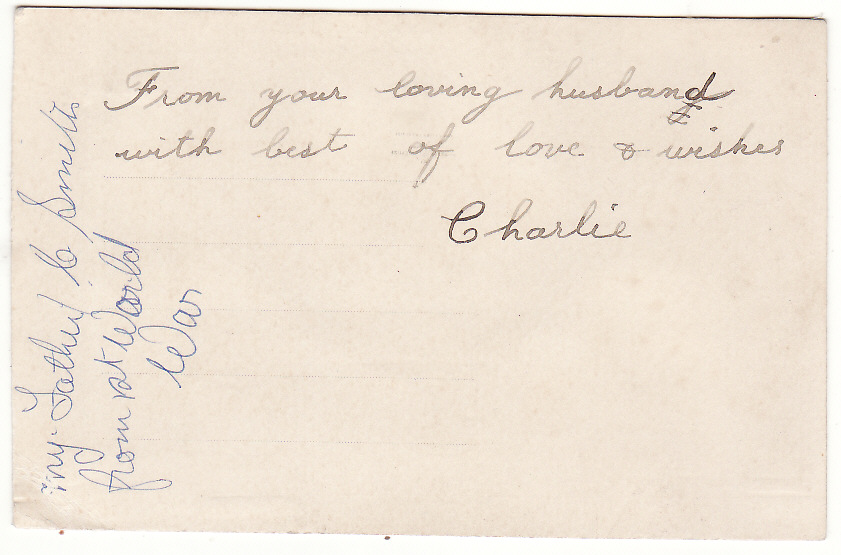 From your loving husband
with best of love & wishes
Charlie
my Father C Smith
from 1st World
War